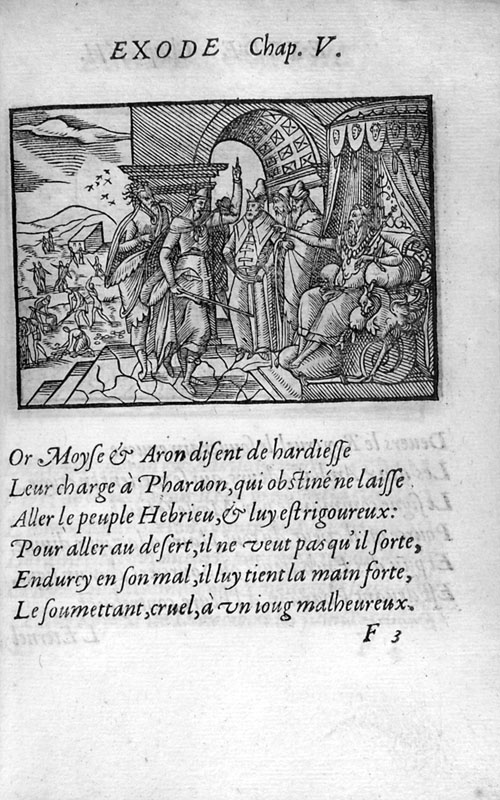 EXODE Chap. V.
Or Moyſe & Aron diſent de hardieſſe
Leur charge à Pharaon, qui obſtiné ne laiſſe
Aller le peuple Hebrieu, & luy eſt rigoureux:
Pour aller au deſert, il ne veut pas qu'il ſorte,
Endurcy en ſon mal, il luy tient la main forte,
Le ſoumettant, cruel, à vn ioug malheureux.
F 3